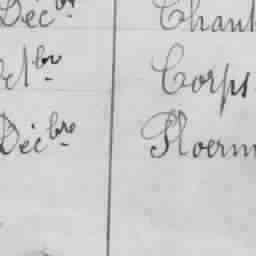 Déc^br Chant
Oct^br Corps
Déc^bre Ploerm